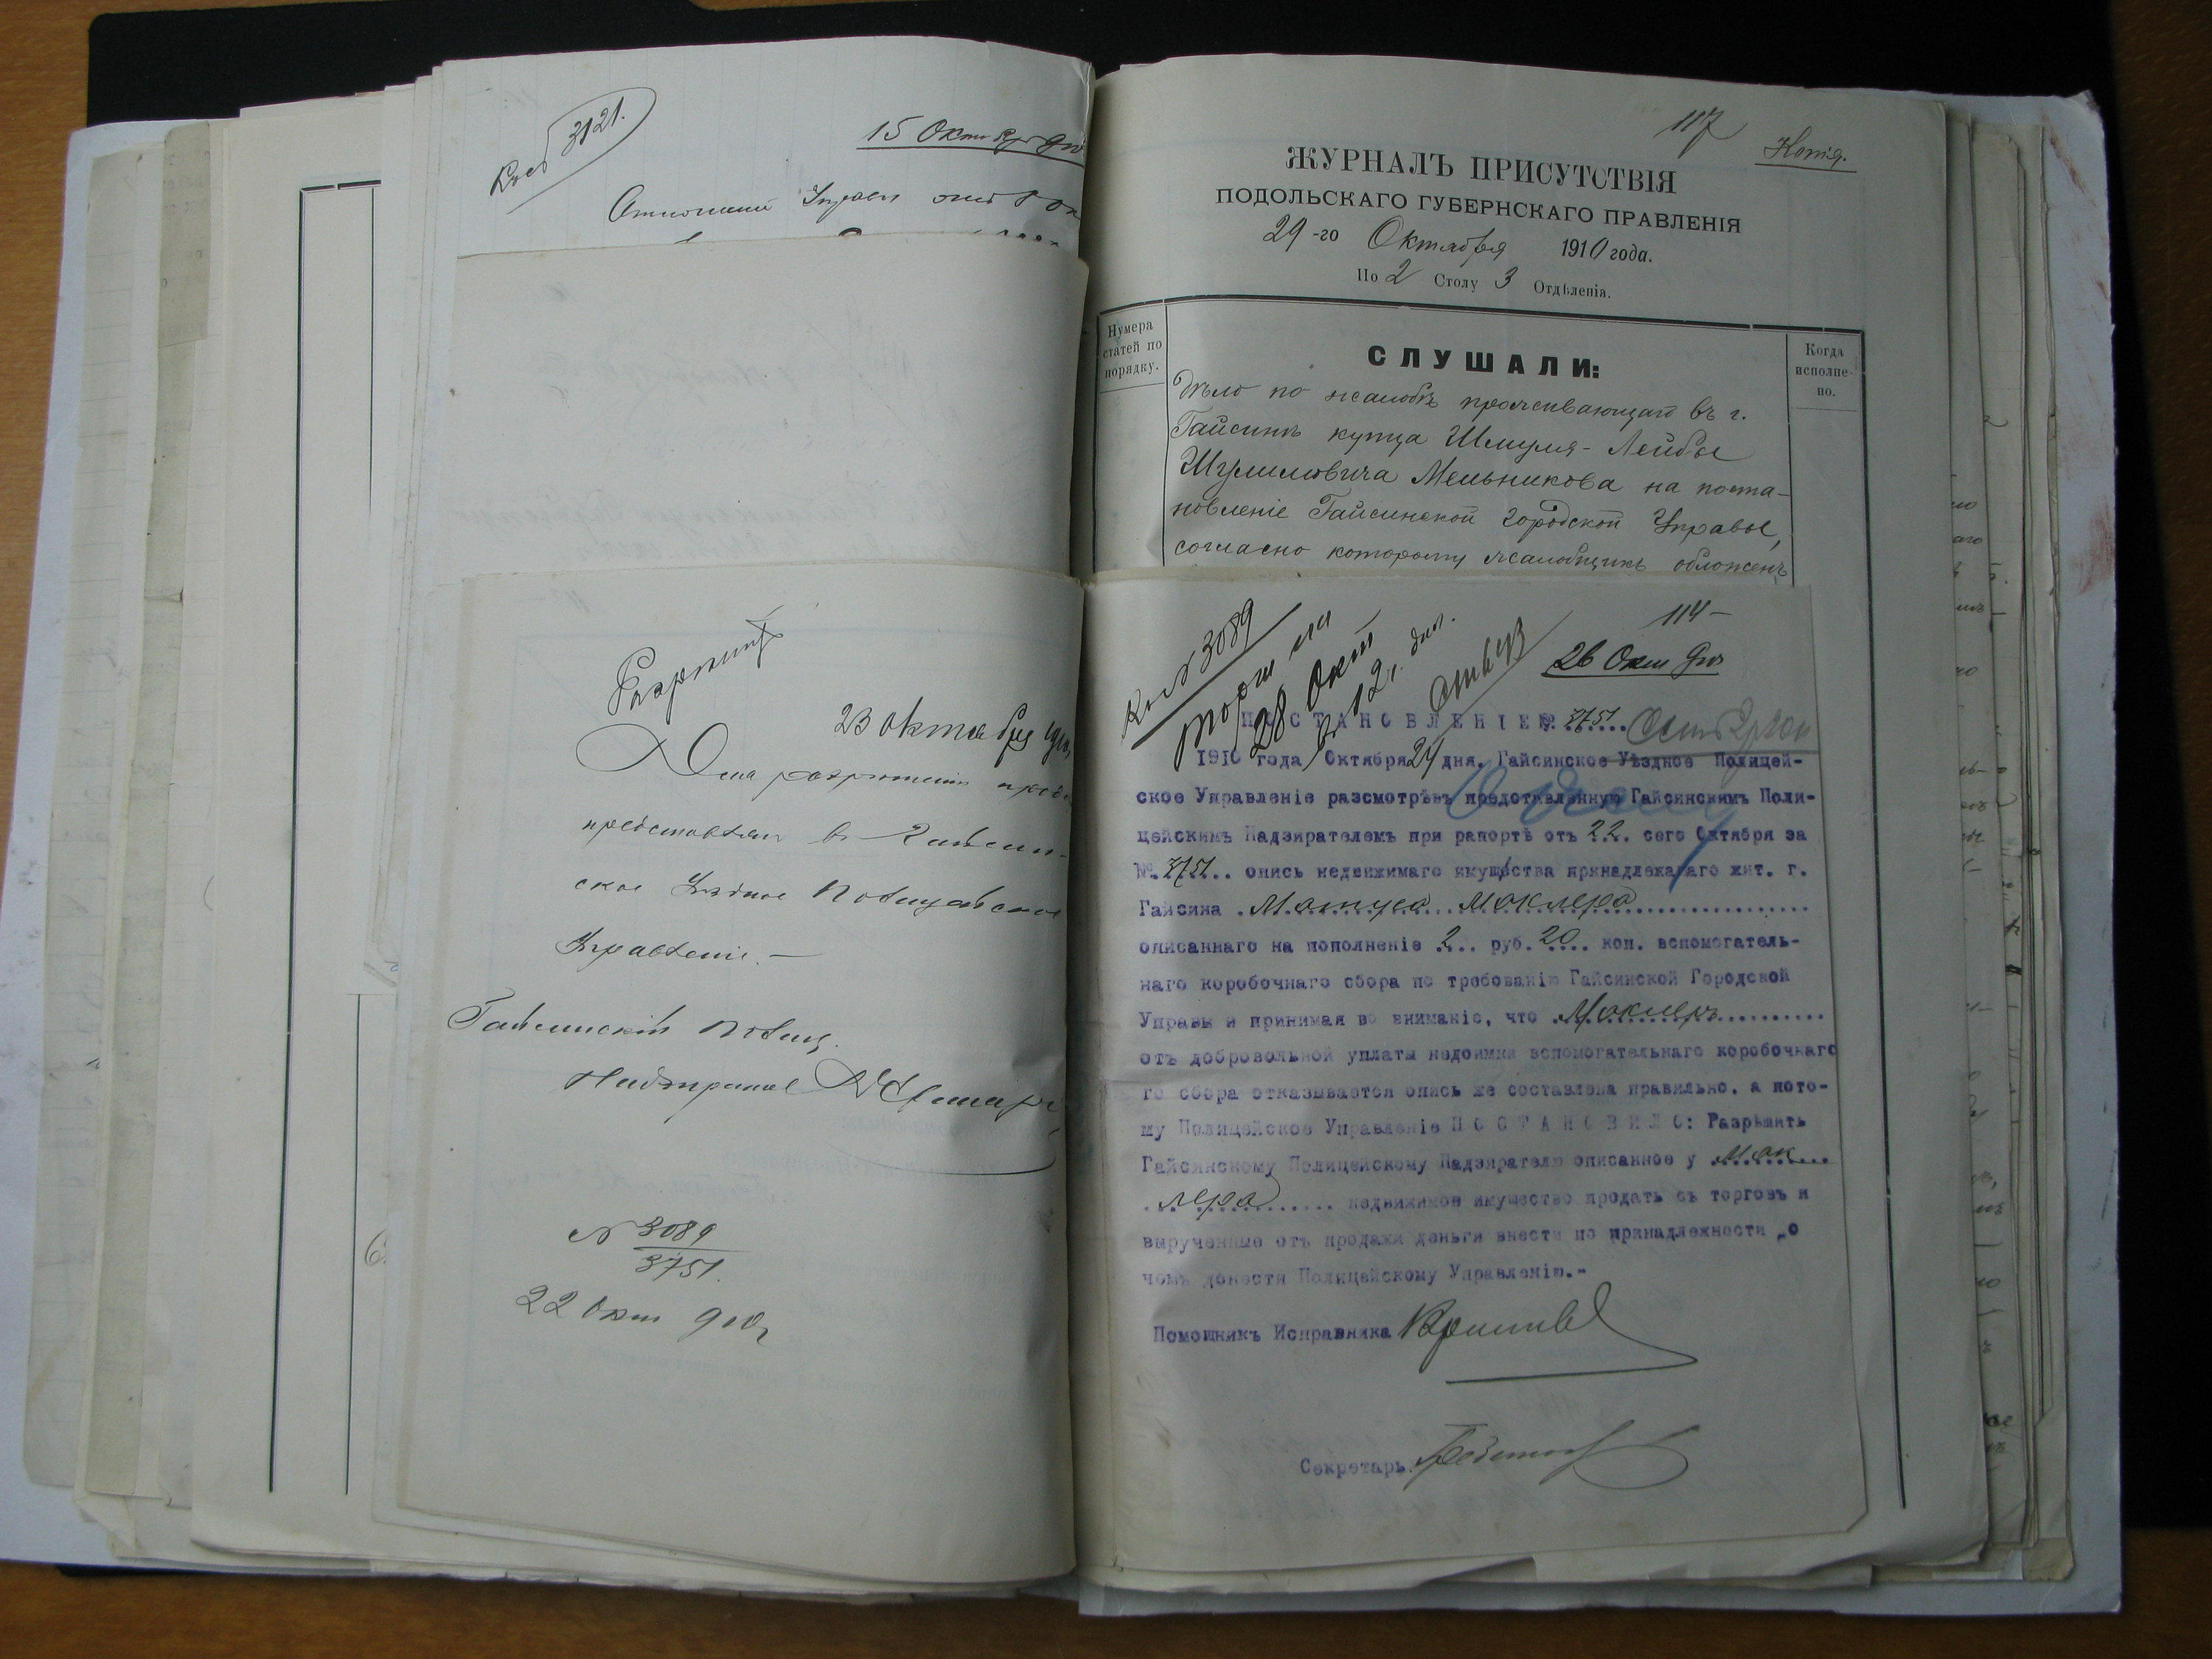 3121.
15 Октября
Отношеніе
Разрѣшить
23 Октября 1910
Для разрѣшенія
представляю въ Гайсин-
ское Уѣздное Полицейское
Управленіе.—
Гайсинскій Полиц.
Надзиратель
№ 3089
3751.
22 Окт 910 г
117
Копія.
ЖУРНАЛЪ ПРИСУТСТВІЯ
ПОДОЛЬСКАГО ГУБЕРНСКАГО ПРАВЛЕНІЯ
29-го Октября 1910 года.
По 2 Столу 3 Отдѣленія.
Нумера
статей по
порядку.
СЛУШАЛИ:
Когда
исполне-
но.
Дѣло по жалобѣ проживающаго въ г.
Гайсинѣ купца Шмуля-Лейбы
Шулимовича Мельникова на поста-
новленіе Гайсинской Городской Управы,
согласно которому жалобщикъ обложенъ
№ 3089
торги на
28 Окт
въ 12 ч. дня.
114—
26 Окт 910
ПОСТАНОВЛЕНІЕ № 3751
1910 года Октября 24 дня. Гайсинское Уѣздное Полицей-
ское Управленіе разсмотрѣвъ представленную Гайсинскимъ Поли-
цейскимъ Надзирателемъ при рапортѣ отъ 22. сего Октября за
№ 3751.. опись недвижимаго имущества принадлежащаго жит. г.
Гайсина Матуса Маклера
описаннаго на пополненіе 2... руб. 20.... коп. вспомогатель-
наго коробочнаго сбора по требованію Гайсинской Городской
Управы и принимая во вниманіе, что Маклеръ
отъ добровольной уплаты недоимки вспомогательнаго коробочнаго
го сбора отказывается опись же составлена правильно, а пото-
му Полицейское Управленіе ПОСТАНОВИЛО: Разрѣшить
Гайсинскому Полицейскому Надзирателю описанное у Мак
лера недвижимое имущество продать съ торговъ и
вырученные отъ продажи деньги внести по принадлежности „о
чемъ донести Полицейскому Управленію.-
Помощникъ Исправника
Секретарь